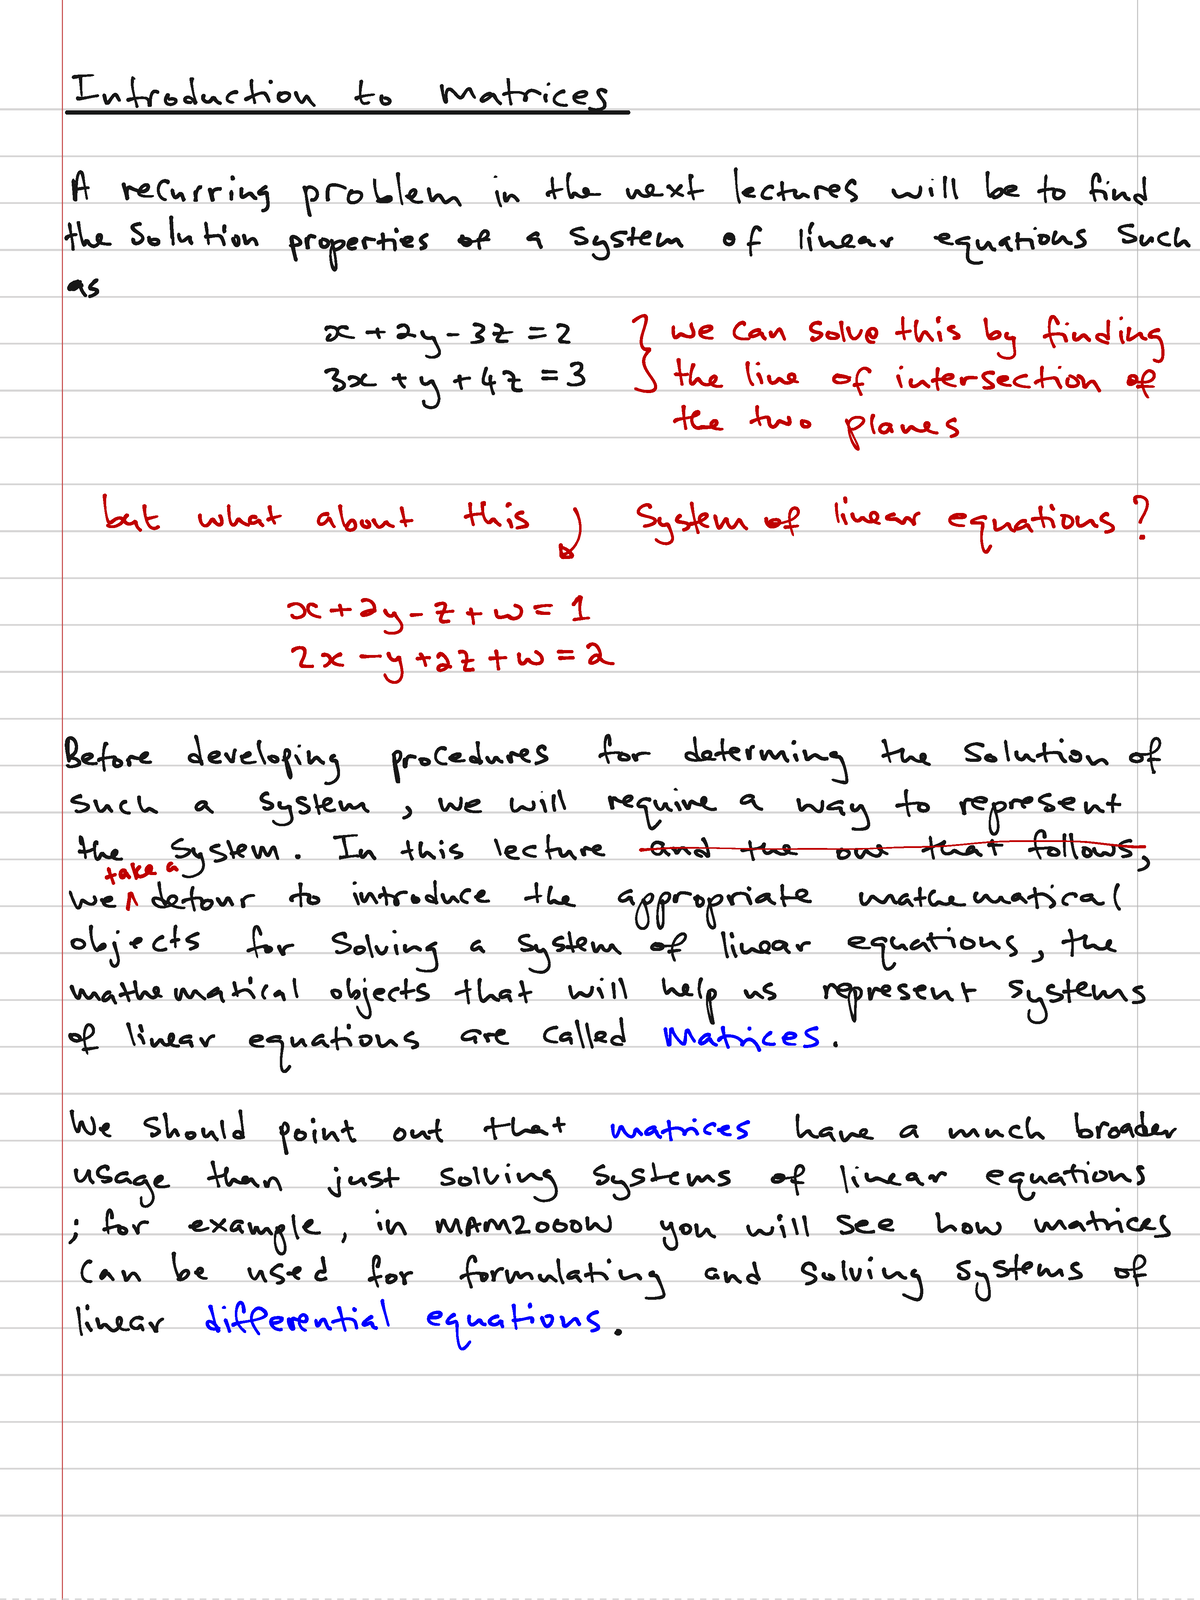 Introduction to Matrices
A recurring problem in the next lectures will be to find
the solution properties of a system of linear equations such
as
x + 2y - 3z = 2 } we can solve this by finding
3x + y + 4z = 3 the line of intersection of
the two planes
but what about this ↓ system of linear equations?
x + 2y - z + w = 1
2x - y + 2z + w = 2
Before developing procedures for determing the solution of
such a system, we will require a way to represent
the system. In this lecture and the one that follows,
take a
we ∧ detour to introduce the appropriate mathematical
objects for solving a system of linear equations, the
mathematical objects that will help us represent systems
of linear equations are called Matrices.
We should point out that matrices have a much broader
usage than just solving systems of linear equations
; for example, in MAM2000W you will see how matrices
can be used for formulating and solving systems of
linear differential equations.